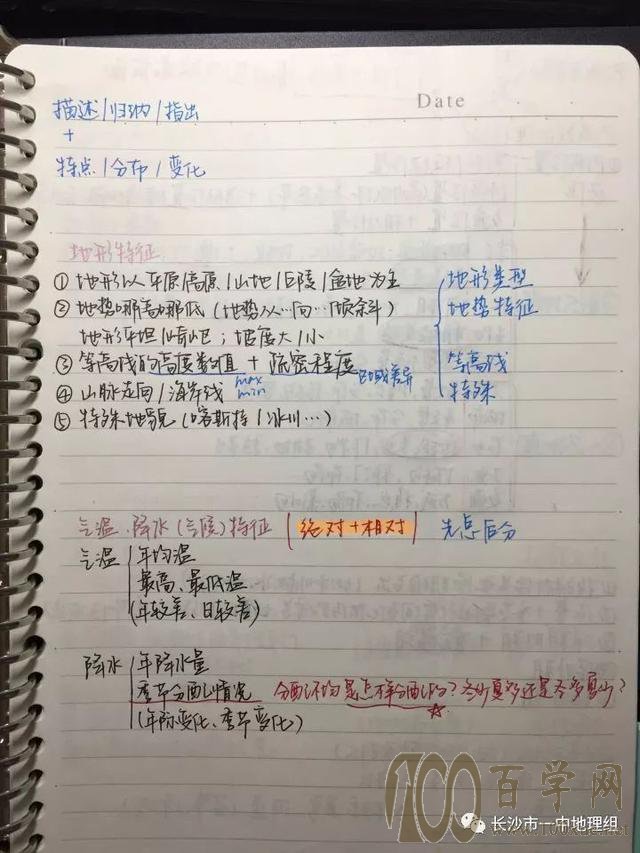 Date
描述/归纳/指出
+
特点/分布/变化
地形特征
① 地形以平原/高原/山地/丘陵/盆地为主
② 地势哪高哪低(地势从…向…倾斜)
地形平坦/崎岖;坡度大/小
③ 等高线的高度数值 + 疏密程度 区域差异
max
min
④ 山脉走向/海岸线
⑤ 特殊地貌(喀斯特/冰川…)
地形类型
地势特征
等高线
特殊
气温、降水(气候)特征 绝对+相对 先总后分
气温 年均温
最高、最低温
(年较差、日较差)
降水 年降水量
季节分配情况 分配不均是怎样分配的?冬少夏多还是冬多夏少?
(年际变化、季节变化)
100百学网
长沙市一中地理组